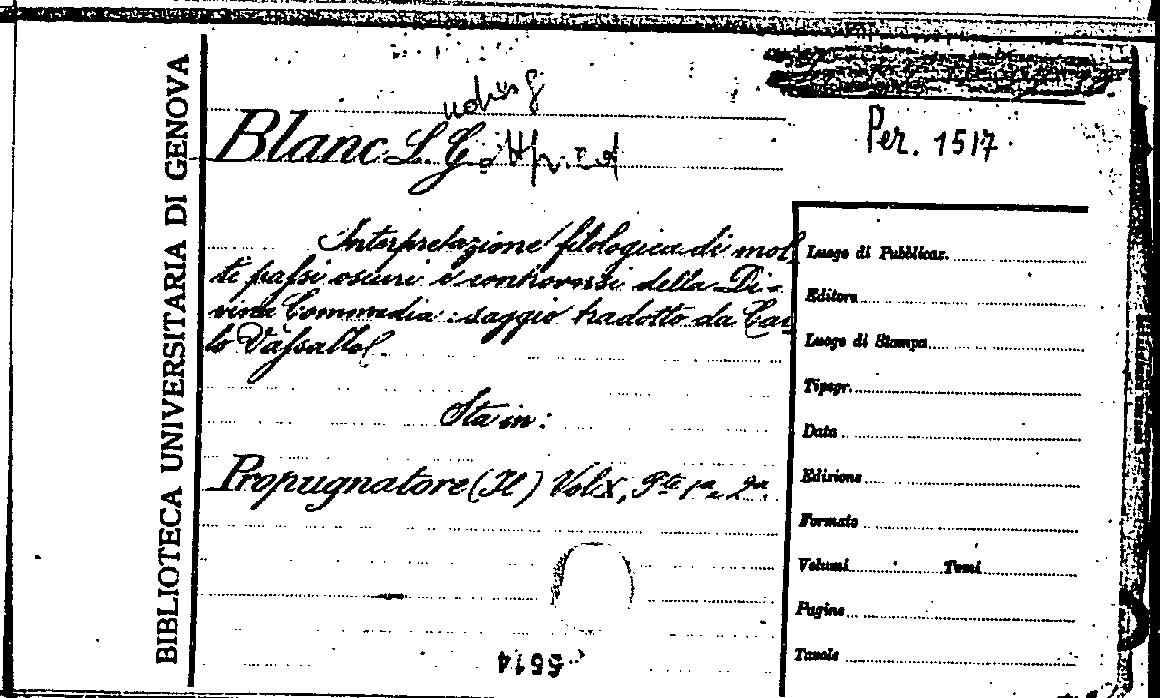 BIBLIOTECA UNIVERSITARIA DI GENOVA
Per. 1517.
Blanc L. Gottfried
Interpretazione filologica di mol-
ti passi oscuri e controversi della Di-
vina Commedia: saggio tradotto da Car
lo Vassallo.
Sta in:
Propugnatore (Il) Vol X, Pte 1a, 2a.
Luogo di Pubblicaz.
Editore
Luogo di Stampa
Tipogr.
Data
Edizione
Formato
Volumi Tomi
Pagine
Tavole
5614